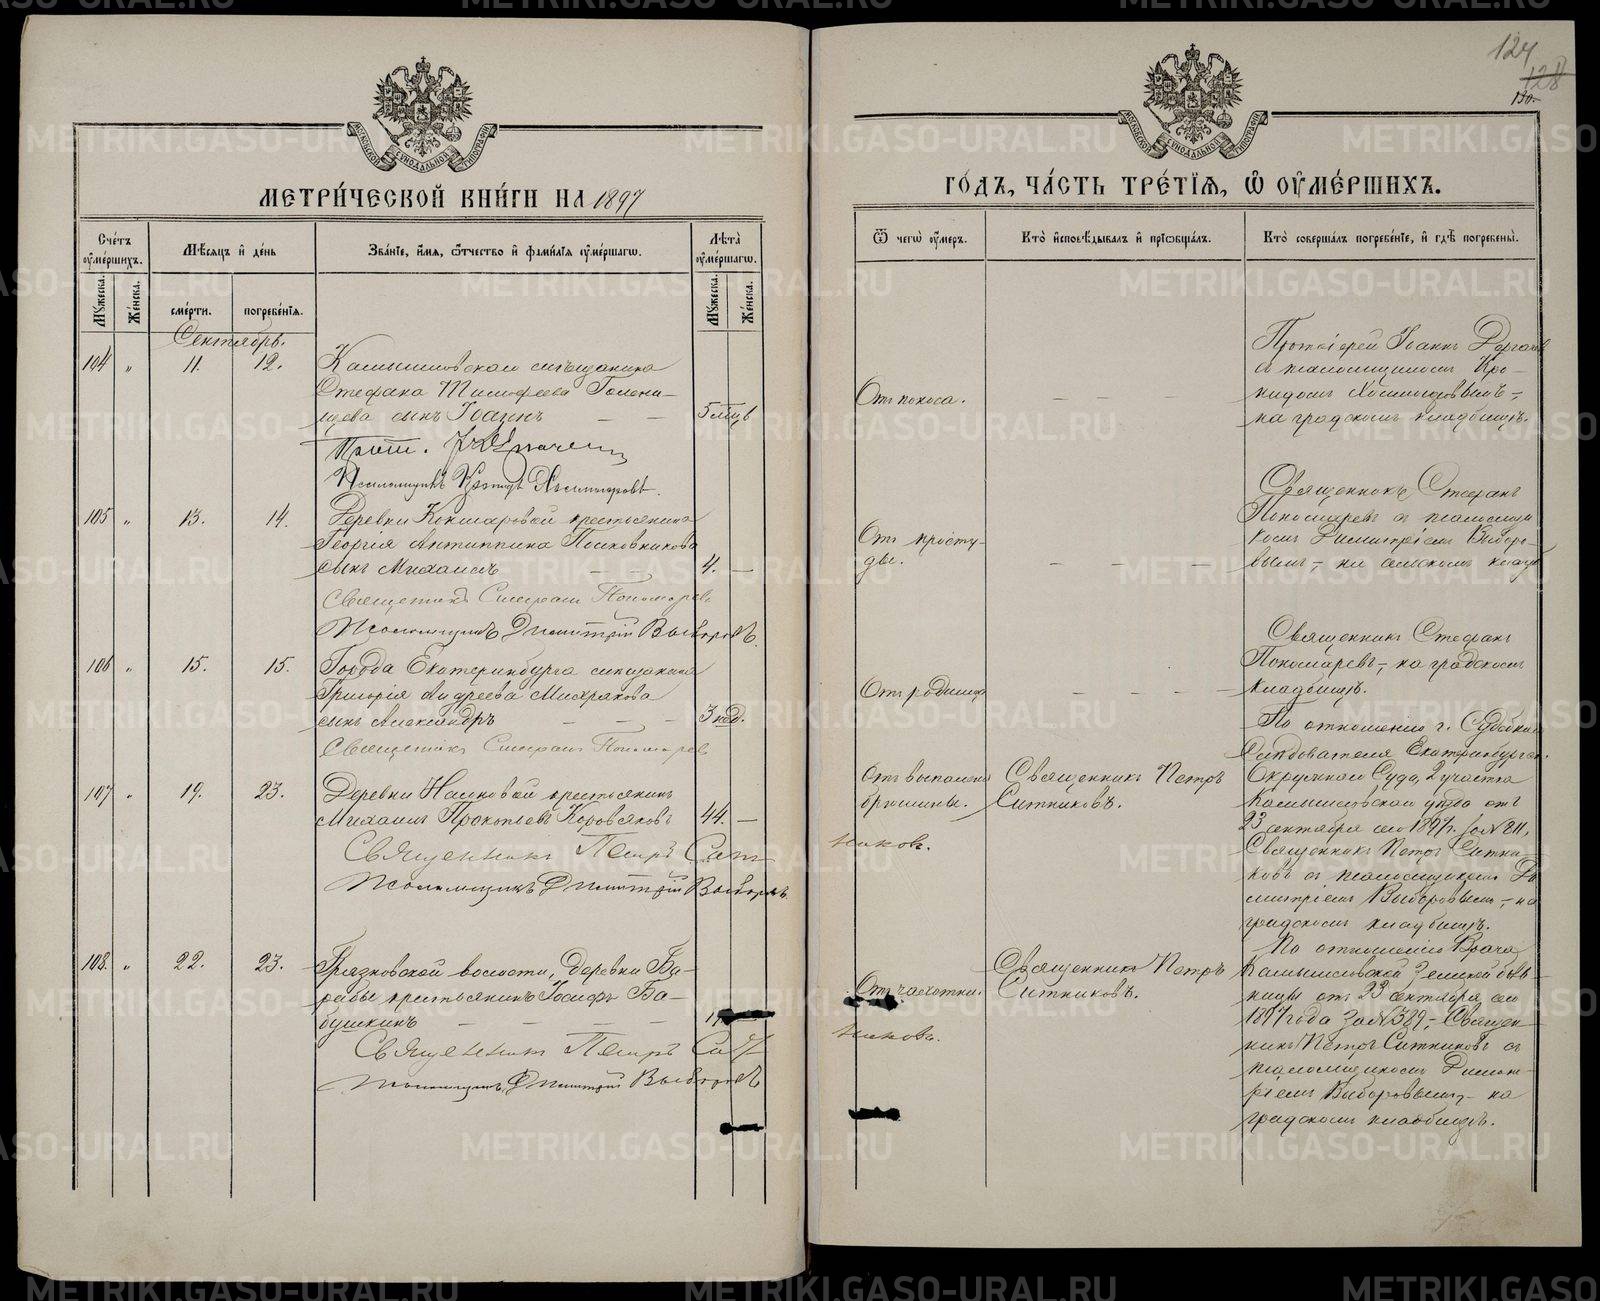 МЕТРИ́ЧЕСКОЙ КНИ́ГИ НА 1897
Сче́тъ ᲂу҆ме́ршихъ.
Мѣ́сяцъ и҆ де́нь
Зва́нїе, и҆́мя, ѻ҆́тчество и҆ фами́лїя ᲂу҆ме́ршагѡ.
Лѣ́та ᲂу҆ме́ршагѡ.
Му́жеска.
Же́нска.
сме́рти.
погребе́нїя.
Му́жеска.
Же́нска.
Сентябрь.
104 " 11. 12. Камышловскаго мѣщанина
Стефана Тимофеева Голени-
щева сынъ Іоаннъ — 5 мцѣ
Прот.
Псаломщикъ
105 " 13. 14. Деревни Кокшаровой крестьянина
Георгія Антиппина Половникова
сынъ Михаилъ — 4. —
Священникъ Стефанъ Пономаревъ
Псаломщикъ Димитрій Выборовъ.
106 " 15. 15. Города Екатеринбурга мѣщанина
Григорія Андреева
сынъ Александръ — — — 3 нед.
Священникъ Стефанъ Пономарев
107 " 19. 23. Деревни крестьянинъ
Михаилъ Прокопьевъ Коровяковъ 44. —
Священникъ Петръ Сит-
Псаломщикъ Димитрій Выборовъ.
108. " 22. 23. Грязновской волости, деревни Ба-
рабы крестьянинъ Іосифъ Ба-
бушкинъ — — —
Священникъ Петръ Сит-
Псаломщикъ Димитрій Выборовъ
124
128
130.
МОСКОВСКОЙ СУНОДАЛЬНОЙ ТИПОГРАФІИ
ГО́ДЪ, ЧА́СТЬ ТРЕ́ТЇЯ, Ѽ ОУ҆МЕ́РШИХЪ.
Ѿ чегѡ̀ ᲂу҆́меръ.
Кто̀ и҆сповѣ́дывалъ и҆ прїѻбща́лъ.
Кто̀ соверша́лъ погребе́нїе, и҆ гдѣ̀ погребены̀.
Отъ поноса. — — —
Протоіерей Іоаннъ
съ псаломщикомъ Кро-
нидомъ
на градскомъ кладбищѣ.
Отъ просту-
ды. — — —
Священникъ Стефанъ
Пономаревъ съ псаломщи
комъ Димитріемъ Выборо-
вымъ, — на сельскомъ кладб
Отъ родимца — — —
Священникъ Стефанъ
Пономаревъ, — на градскомъ
кладбищѣ.
Отъ воспаленія
брюшины.
Священникъ Петръ
Ситниковъ.
никовъ.
По отношенію г. Судебнаго
Слѣдователя Екатеринбургск.
Окружнаго Суда, 2 участка
Камышловскаго уѣзда отъ
23 сентября сего 1897 г. за № 211,
Священникъ Петръ Ситни-
ковъ съ псаломщикомъ Ди
митріемъ Выборовымъ, — на
градскомъ кладбищѣ.
Отъ чахотки.
Священникъ Петръ
Ситниковъ.
никовъ.
По отношенію Врача
Камышловской Земской боль-
ницы отъ 23 сентября сего
1897 года за № 389, — Священ-
никъ Петръ Ситниковъ съ
псаломщикомъ Димит-
ріемъ Выборовымъ, — на
градскомъ кладбищѣ.
METRIKI.GASO-URAL.RU